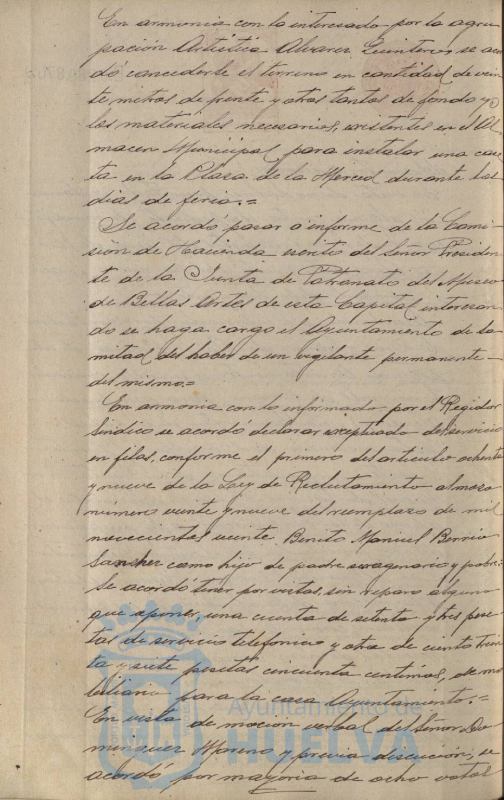 En armonia con lo interesado por la agru-
pación Artística Alvarez Quintero, se acor-
dó concederle el terreno en cantidad de vein-
te metros de frente y otros tantos de fondo y
los materiales necesarios, existentes en el Al-
macen Municipal, para instalar una case-
ta en la Plaza de la Merced durante los
dias de feria.=
Se acordó pasar a informe de la Comi-
sión de Hacienda escrito del Señor Presiden-
te de la Junta de Patronato del Museo
de Bellas Artes de esta Capital interesan-
do se haga cargo el Ayuntamiento de la
mitad del haber de un vigilante permanente
del mismo.=
En armonia con lo informado por el Regidor
Sindico se acordó declarar exceptuado del servicio
en filas, conforme el primero del articulo ochenta
y nueve de la Ley de Reclutamiento al mozo
número veinte y nueve del reemplazo de mil
novecientos veinte Benito Manuel Berrio
Sanchez como hijo de padre sexagenario y pobre.=
Se acordó tener por vistas, sin reparo alguno
que oponer, una cuenta de setenta y tres pese-
tas de servicio telefonico y otra de ciento trein-
ta y siete pesetas cincuenta centimos, de mo-
biliario para la casa Ayuntamiento.=
En vista de moción verbal del Señor Do-
minguez Moreno y previa discución, se
acordó por mayoria de ocho votos
Ayuntamiento de
HUELVA